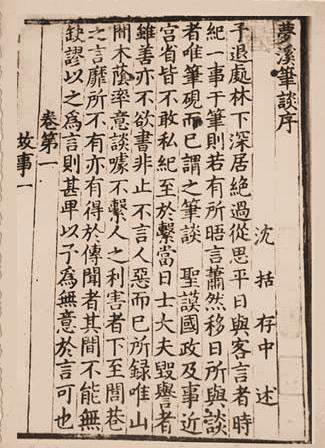 夢溪筆談序
沈括存中述
予退處林下深居絕過從思平日與客言者時
紀一事于筆則若有所晤言蕭然移日所與談
者唯筆硯而已謂之筆談聖謨國政及事近
宫省皆不敢私紀至於繫當日士大夫毀譽者
雖善亦不欲書非止不言人惡而已所録唯山
間木蔭率意談噱不繫人之利害者下至閭巷
之言靡所不有亦有得於傳聞者其間不能無
缺謬以之為言則甚卑以予為無意於言可也
卷第一
故事一